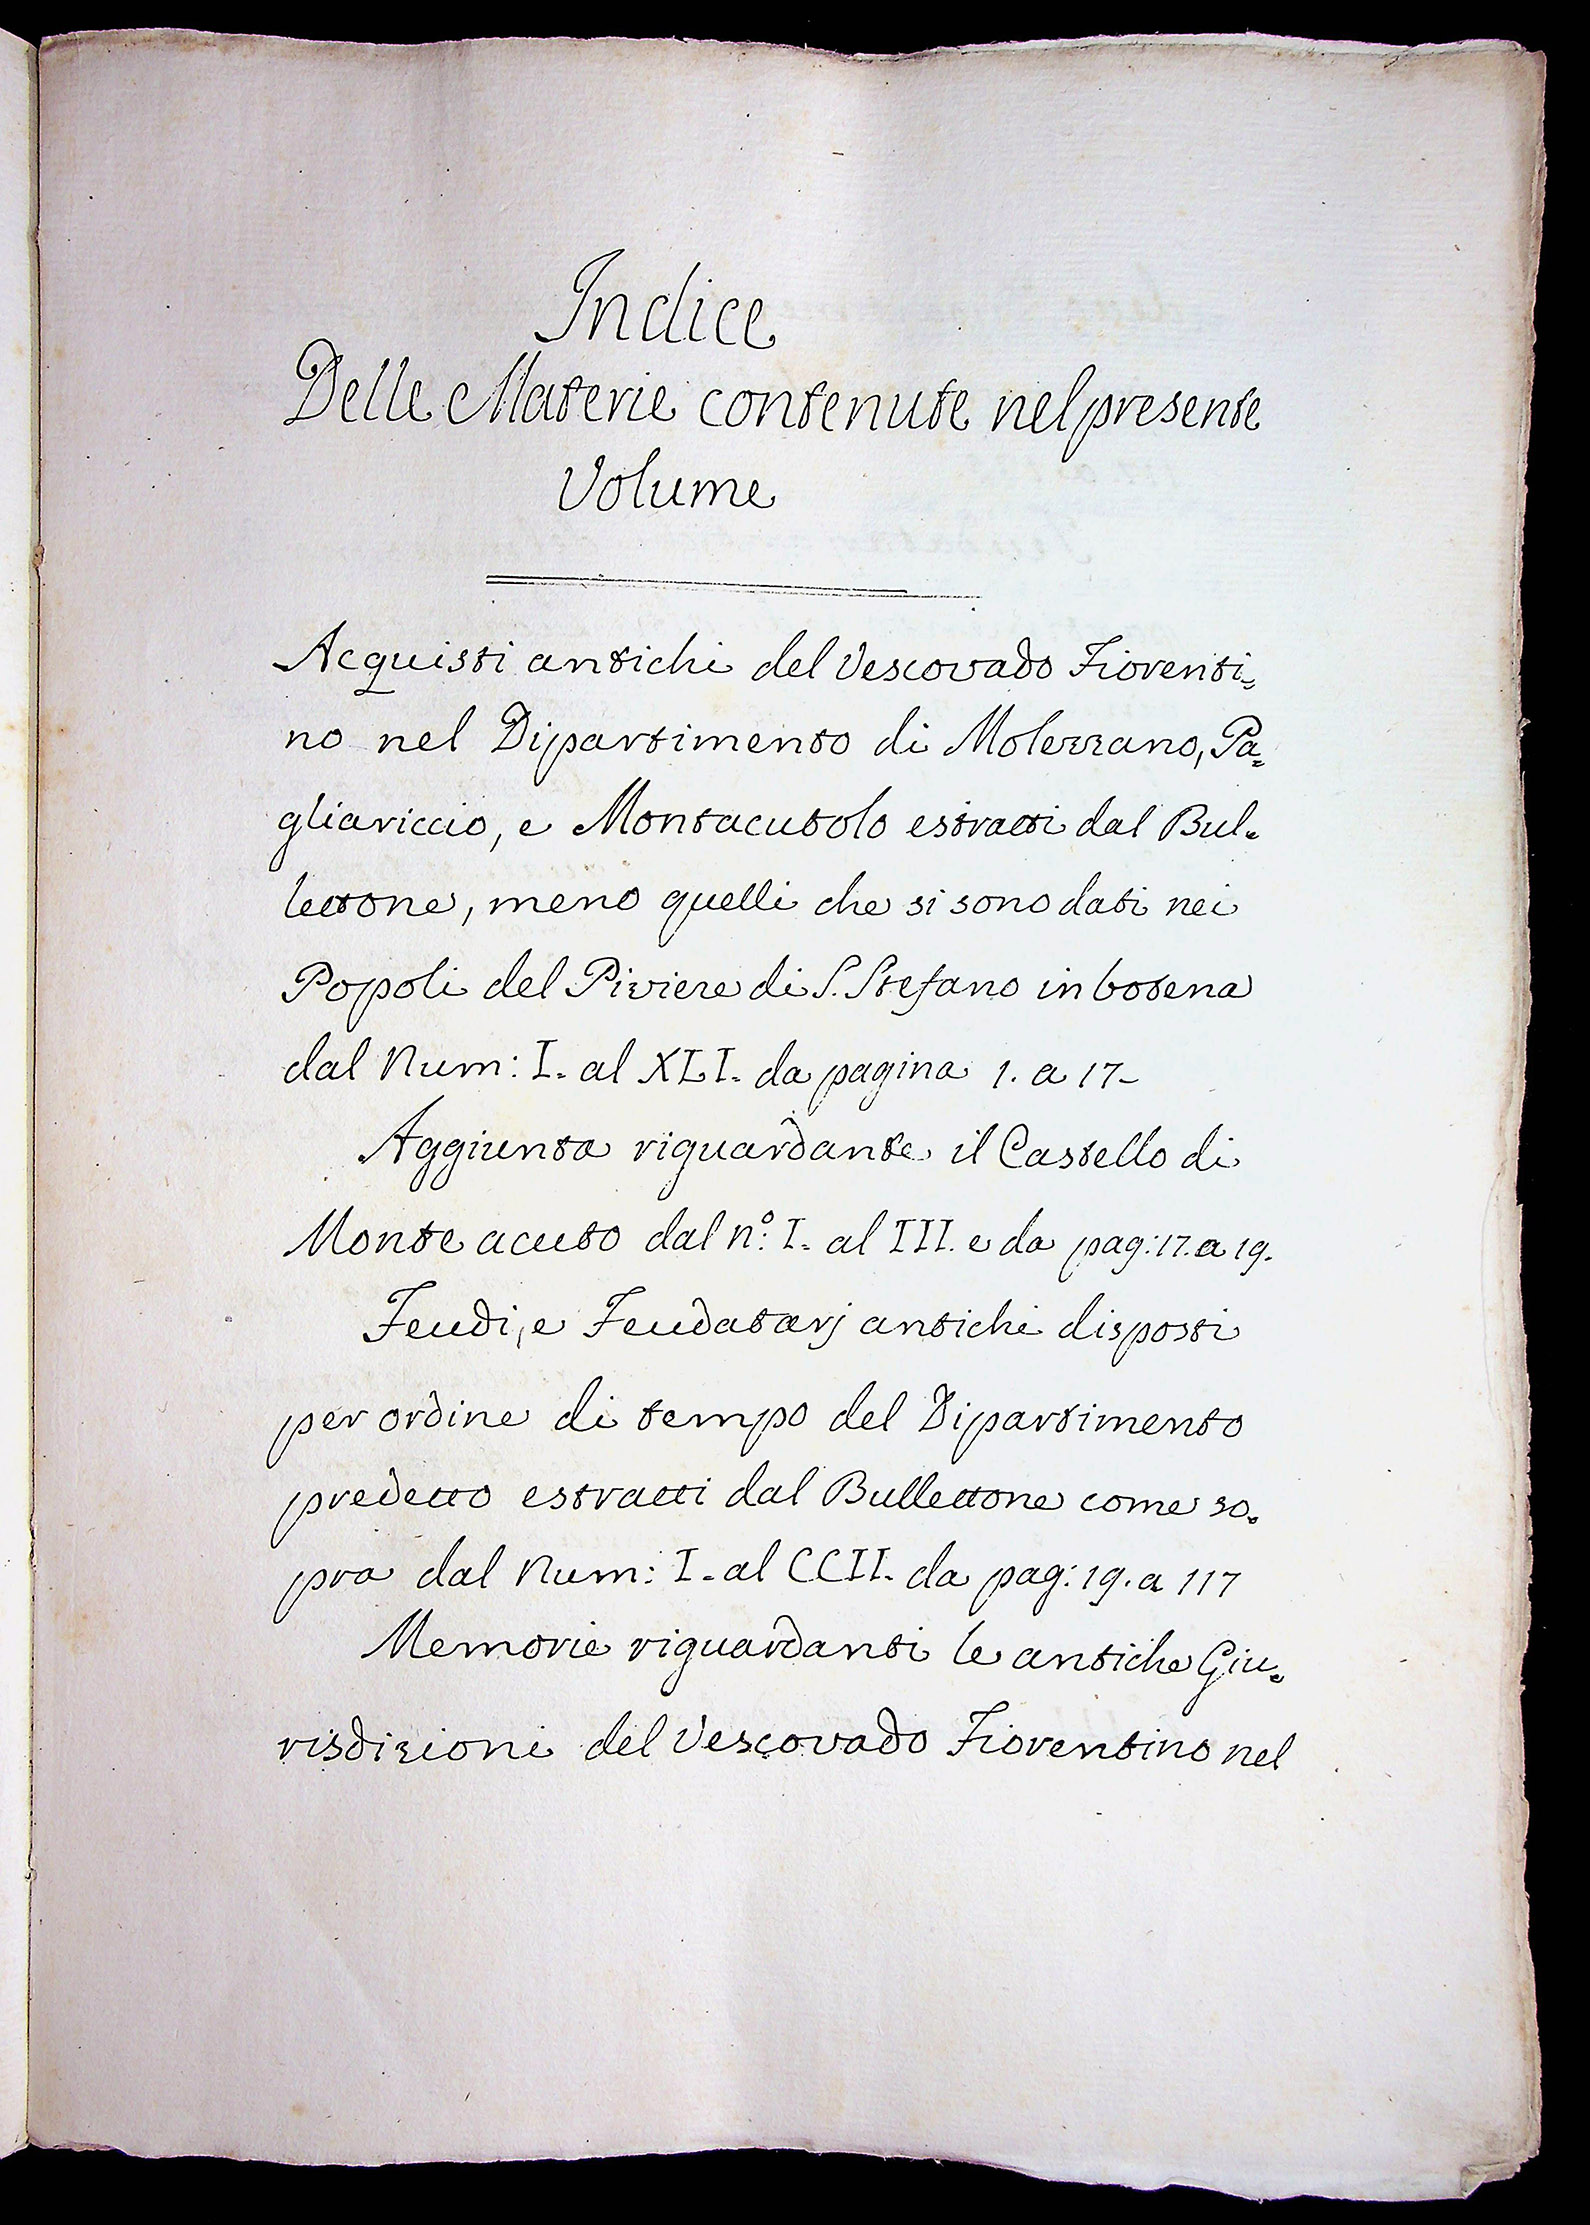 Indice
Delle Materie contenute nel presente
Volume
Acquisti antichi del Vescovado Fiorenti=
no nel Dipartimento di Molezzano, Pa=
gliariccio, e Montacutolo estratti dal Bul=
lettone, meno quelli che si sono dati nei
Popoli del Piviere di S. Stefano in botena
dal Num: I. al XLI. da pagina 1. a 17-
Aggiunta riguardante il Castello di
Monte acuto dal n.º: I. al III. e da pag: 17. a 19.
Feudi, e Feudatarj antichi disposti
per ordine di tempo del Dipartimento
predetto estratti dal Bullettone come so=
pra dal Num: I. al CCII. da pag: 19. a 117
Memorie riguardanti le antiche Giu=
risdizioni del Vescovado Fiorentino nel